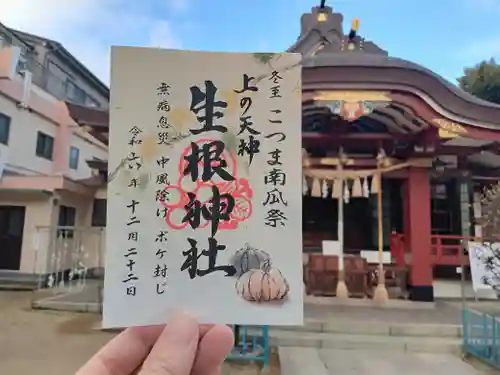 冬至 こつま南瓜祭
上の天神
生根神社
無病息災 中風除け ボケ封じ
令和六年 十二月二十二日